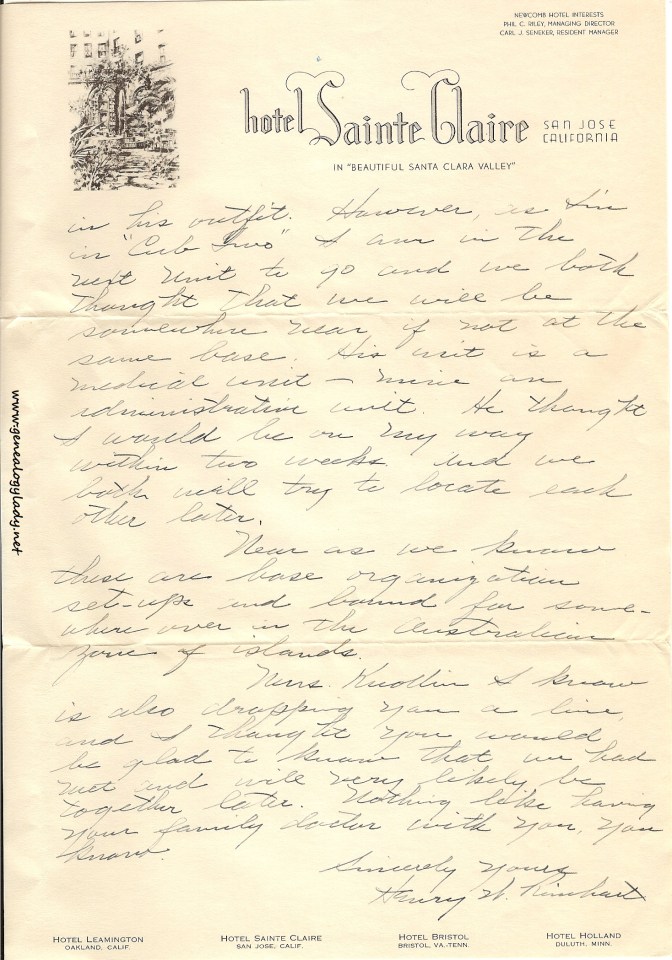 NEWCOMB HOTEL INTERESTS
PHIL C. RILEY, MANAGING DIRECTOR
CARL J. SENEKER, RESIDENT MANAGER
hotel Sainte Claire SAN JOSE
CALIFORNIA
IN "BEAUTIFUL SANTA CLARA VALLEY"
in his outfit. However, as I'm
in "Cub Two" I am in the
next unit to go and we both
thought that we will be
somewhere near, if not at the
same base. His unit is a
medical unit — mine an
administrative unit. He thought
I would be on my way
within two weeks and we
both will try to locate each
other later.
Near as we know
these are base organization
set-ups and bound for some-
where over in the Australian
zone of islands.
Mrs. I know
is also dropping you a line,
and I thought you would
be glad to know that we had
met and will very likely be
together later. Nothing like having
your family doctor with you, you
know.
Sincerely yours
Henry W. Rinehart
www.genealogylady.net
HOTEL LEAMINGTON
OAKLAND, CALIF.
HOTEL SAINTE CLAIRE
SAN JOSE, CALIF.
HOTEL BRISTOL
BRISTOL, VA.-TENN.
HOTEL HOLLAND
DULUTH, MINN.